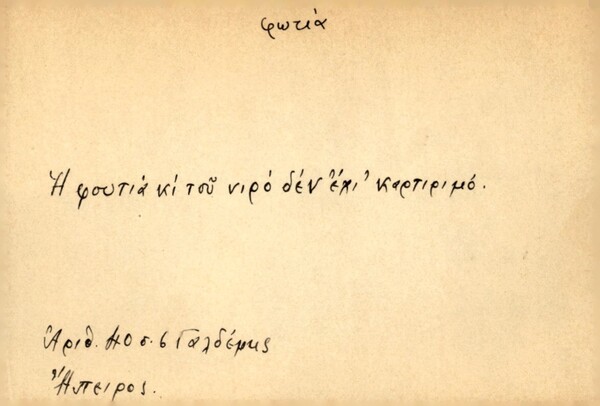 φωτιά
Ἡ φουτιά κί τοῦ νιρό δέν ἔχι καρτιριμό.
Ἀριθ. 40 σ. 6 Γαλδέμης
Ἤπειρος.